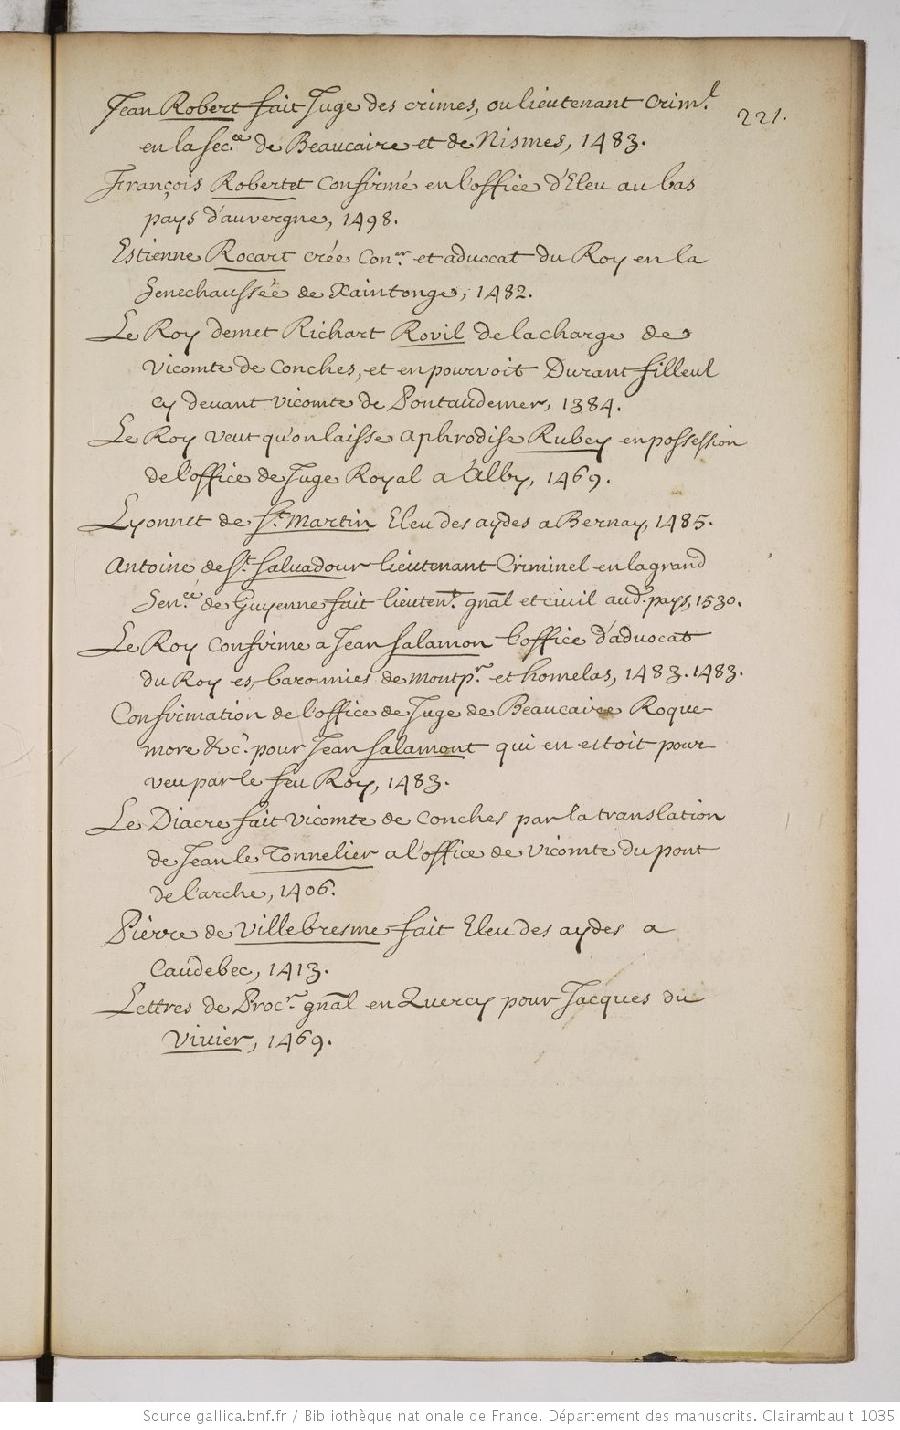 221.
Jean Robert fait Juge des crimes, ou lieutenant Crim.l
en la Sec.ée de Beaucaire et de Nismes, 1483.
François Robertet Confirmé en l'office d'Eleu au bas
pays d'auvergne, 1498.
Estienne Rocart crée Con.er et advocat du Roy en la
Senechaussée de Xaintonge, 1482.
Le Roy demet Richart Rovil de la charge de
Vicomte de Conches, et en pourvoit Durant filleul
cy devant vicomte de Pontaudemer, 1384.
Le Roy veut qu'on laisse aphrodise Rubey en possession
de l'office de Juge Royal a Alby, 1469.
Lyonnet de S.t Martin Eleu des aydes a Bernay, 1485.
Antoine de S.t Salvadour lieutenant Criminel en la grand
Sen.ée de Guyenne fait lieuten.t gnal et civil aud. pays, 1530.
Le Roy Confirme a Jean Salamon l'office d'advocat
du Roy es, baronnies de Montp.r et homelas, 1483. 1483.
Confirmation de l'office de Juge de Beaucaire Roque
more &c. pour Jean Salamont qui en estoit pour
veu par le feu Roy, 1483.
Le Diacre fait vicomte de Conches par la translation
de Jean le Tonnelier a l'office de vicomte du pont
de l'arche, 1406.
Pierre de Villebresme fait Eleu des aydes a
Caudebec, 1413.
Lettres de Proc.r gnal en Quercy pour Jacques du
Vivier, 1469.
Source gallica.bnf.fr / Bibliothèque nationale de France. Département des manuscrits. Clairambault 1035